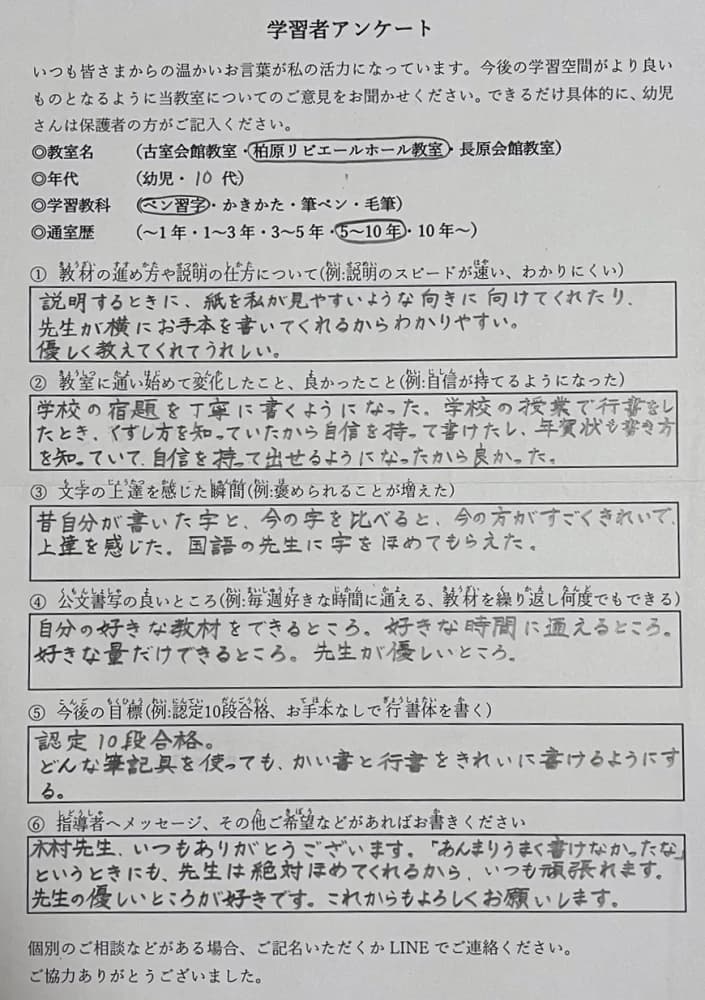 学習者アンケート
いつも皆さまからの温かいお言葉が私の活力になっています。今後の学習空間がより良い
ものとなるように当教室についてのご意見をお聞かせください。できるだけ具体的に、幼児
さんは保護者の方がご記入ください。
◎教室名 (古室会館教室・柏原リビエールホール教室・長原会館教室)
◎年代 (幼児・10代)
◎学習教科 (ペン習字・かきかた・筆ペン・毛筆)
◎通室歴 (～1年・1～3年・3～5年・5～10年・10年～)
① 教材の進め方や説明の仕方について(例:説明のスピードが速い、わかりにくい)
説明するときに、紙を私が見やすいような向きに向けてくれたり、
先生が横にお手本を書いてくれるからわかりやすい。
優しく教えてくれてうれしい。
② 教室に通い始めて変化したこと、良かったこと(例:自信が持てるようになった)
学校の宿題を丁寧に書くようになった。学校の授業で行書をし
たとき、くずし方を知っていたから自信を持って書けたし、年賀状も書き方
を知っていて、自信を持って出せるようになったから良かった。
③ 文字の上達を感じた瞬間(例:褒められることが増えた)
昔自分が書いた字と、今の字を比べると、今の方がすごくきれいで、
上達を感じた。国語の先生に字をほめてもらえた。
④ 公文書写の良いところ(例:毎週好きな時間に通える、教材を繰り返し何度でもできる)
自分の好きな教材をできるところ。好きな時間に通えるところ。
好きな量だけできるところ。先生が優しいところ。
⑤ 今後の目標(例:認定10段合格、お手本なしで行書体を書く)
認定10段合格。
どんな筆記具を使っても、かい書と行書をきれいに書けるようにす
る。
⑥ 指導者へメッセージ、その他ご希望などがあればお書きください
木村先生、いつもありがとうございます。「あんまりうまく書けなかったな」
というときにも、先生は絶対ほめてくれるから、いつも頑張れます。
先生の優しいところが好きです。これからもよろしくお願いします。
個別のご相談などがある場合、ご記名いただくか LINE でご連絡ください。
ご協力ありがとうございました。